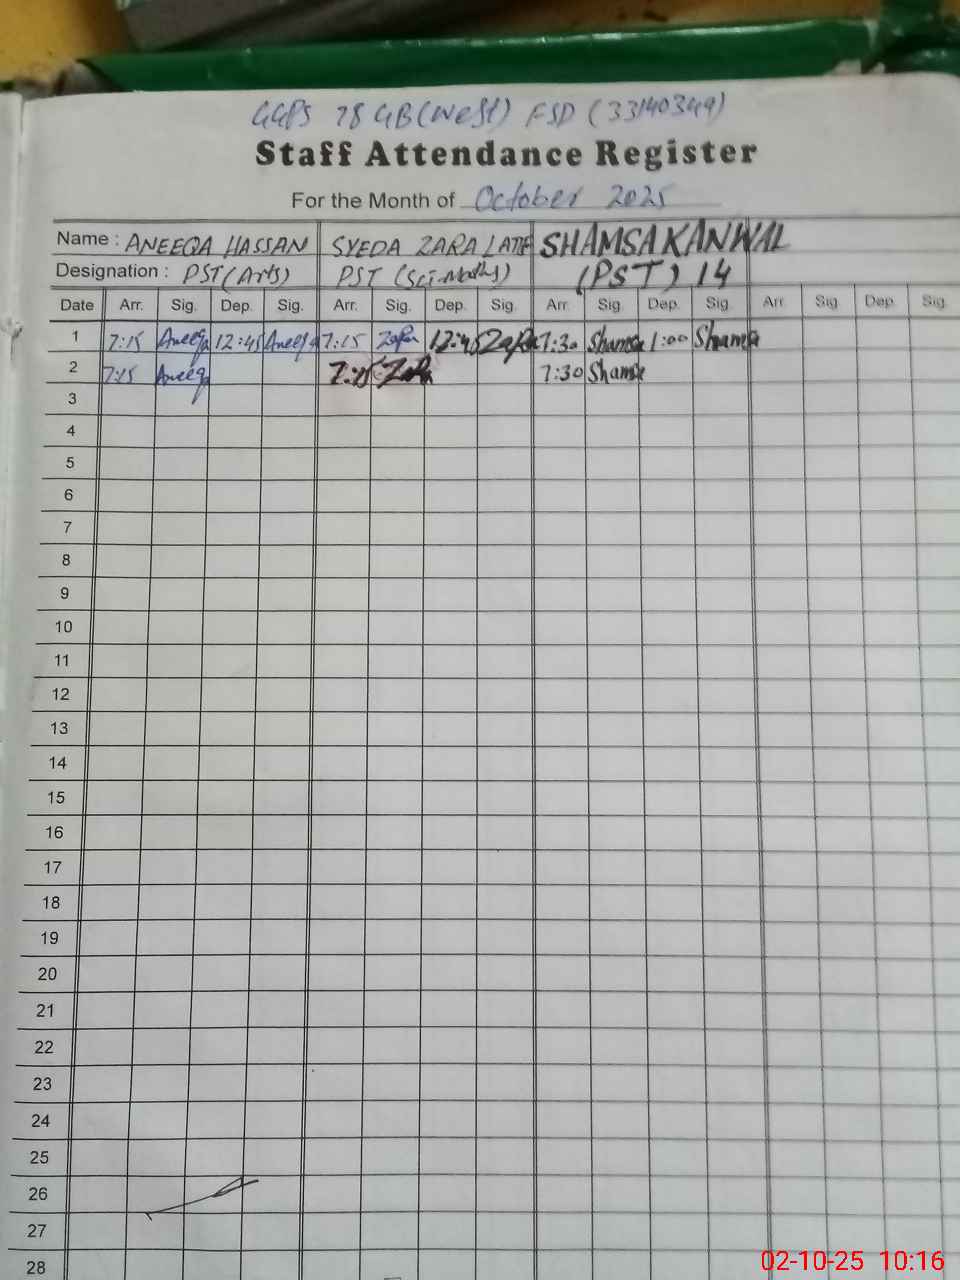 GGPS 78 GB (West) FSD (33140349)
Staff Attendance Register
For the Month of October 2025
Name : ANEEQA HASSAN SYEDA ZARA LATIF SHAMSA KANWAL
Designation : PST (Arts) PST (Sci-Maths) (PST) 14
Date Arr. Sig. Dep. Sig. Arr. Sig. Dep. Sig. Arr. Sig. Dep. Sig. Arr. Sig. Dep. Sig.
1 7:15 Aneeqa 12:45 Aneeqa 7:15 Zara 12:45 Zara 7:30 Shamsa 1:00 Shamsa
2 7:15 Aneeqa 7:15 Zara 7:30 Shamsa
3
4
5
6
7
8
9
10
11
12
13
14
15
16
17
18
19
20
21
22
23
24
25
26
27
28
02-10-25 10:16